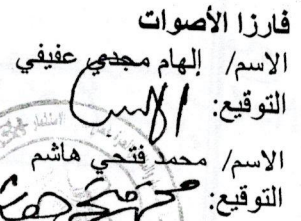 فارزا الأصوات
الاسم/ إلهام مجدي عفيفي
التوقيع:
الاسم/ محمد فتحي هاشم
التوقيع: محمد فتحي هاشم